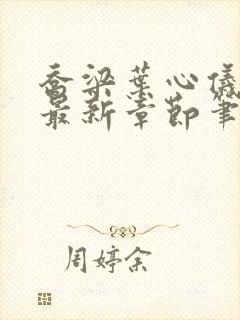 乔梁叶心仪
最新章节笔
周婷余